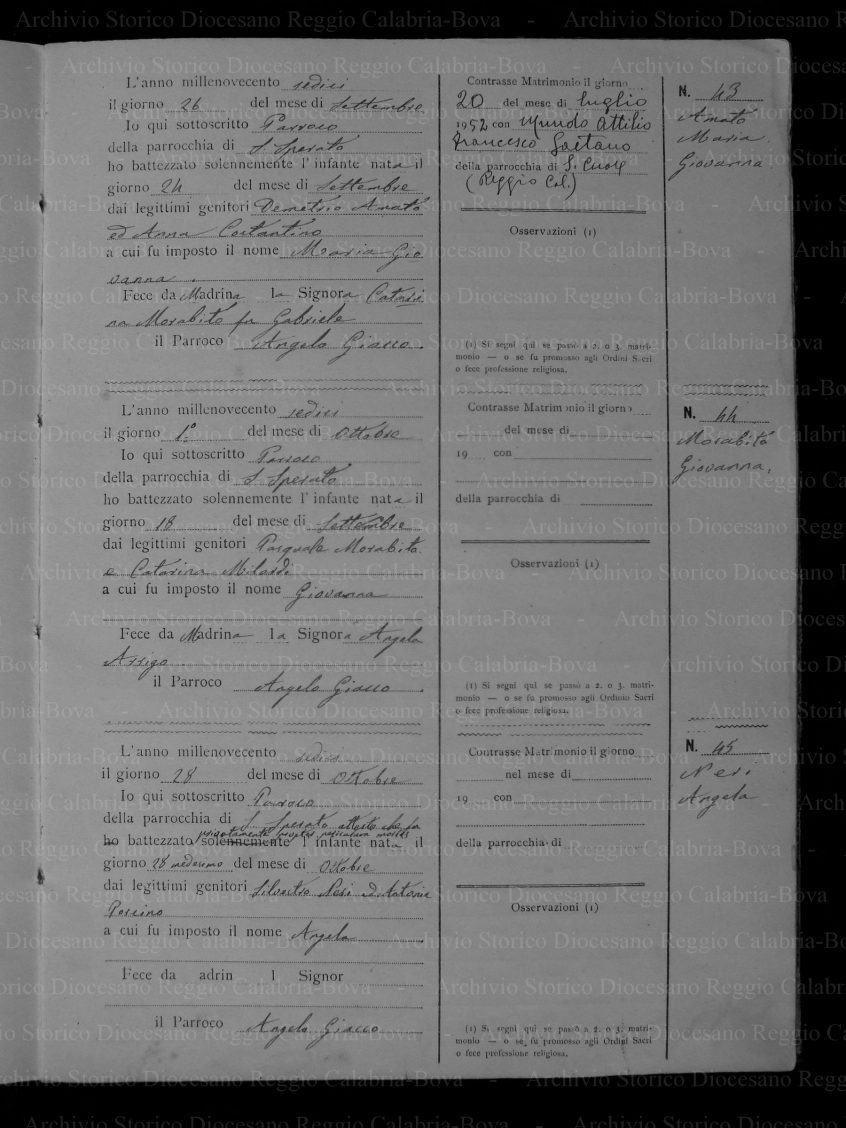 L'anno millenovecento sedici
il giorno 26 del mese di Settembre
Io qui sottoscritto Parroco
della parrocchia di S. Sperato
ho battezzato solennemente l'infante nata il
giorno 24 del mese di Settembre
dai legittimi genitori Demetrio Amato
ed Anna Costantino
a cui fu imposto il nome Maria Gio
vanna.
Fece da Madrina la Signora Catari
na Morabito fu Gabriele
il Parroco Angelo Giacco.
Contrasse Matrimonio il giorno
20 del mese di luglio
1952 con Mundo Attilio
Francesco Gaetano
della parrocchia di S. Cuore
(Reggio Cal.)
Osservazioni (1)
(1) Si segni qui se passò a 2. o 3. matri-
monio — o se fu promosso agli Ordini Sacri
o fece professione religiosa.
N. 43
Amato
Maria
Giovanna
L'anno millenovecento sedici
il giorno 1.° del mese di Ottobre
Io qui sottoscritto Parroco
della parrocchia di S. Sperato
ho battezzato solennemente l'infante nata il
giorno 18 del mese di Settembre
dai legittimi genitori Pasquale Morabito
e Catarina Milardi
a cui fu imposto il nome Giovanna
Fece da Madrina la Signora Angela
Arrigo
il Parroco Angelo Giacco.
Contrasse Matrimonio il giorno
del mese di
19 con
della parrocchia di
Osservazioni (1)
(1) Si segni qui se passò a 2. o 3. matri-
monio — o se fu promosso agli Ordinio Sacri
o fece professione religiosa.
N. 44
Morabito
Giovanna,
L'anno millenovecento sedici
il giorno 28 del mese di Ottobre
Io qui sottoscritto Parroco
della parrocchia di S. Sperato attesto che fu
privatamente propter periculum mortis
ho battezzato solennemente l'infante nata il
giorno 28 medesimo del mese di Ottobre
dai legittimi genitori Silvestro Neri ed Antonia
a cui fu imposto il nome Angela
Fece da adrin l Signor
il Parroco Angelo Giacco
Contrasse Matrimonio il giorno
nel mese di
19 con
della parrocchia di
Osservazioni (1)
(1) Si segni qui se passò a 2. o 3. matri-
monio — o se fu promosso agli Ordini Sacri
o fece professione religiosa.
N. 45
Neri
Angela
Archivio Storico Diocesano Reggio Calabria-Bova